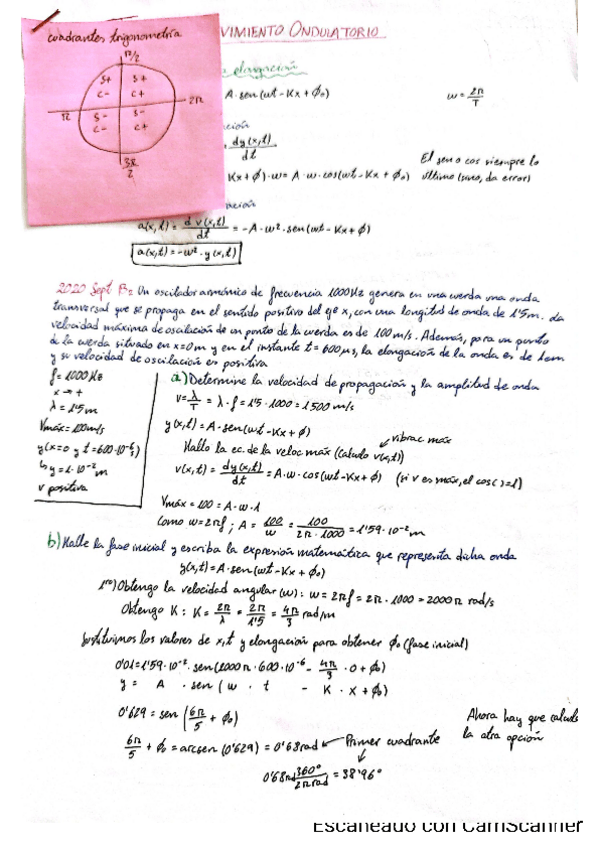 cuadrantes trigonometría
π/2
S+ S+
C- C+
π 2π
S- S-
C- C+
3π/2
VIMIENTO ONDULATORIO
elongación
A·sen(wt-Kx+ϕ₀) w=2π/T
dy(x,t)/dt
El sen o cos siempre lo último (sino, da error)
Kx+ϕ)·w=A·w·cos(wt-Kx+ϕ₀)
a(x,t)=d v(x,t)/dt=-A·w²·sen(wt-Kx+ϕ)
a(x,t)=-w²·y(x,t)
2020 Sept B2 Un oscilador armónico de frecuencia 1000Hz genera en una cuerda una onda
transversal que se propaga en el sentido positivo del eje x, con una longitud de onda de 1'5m. La
velocidad máxima de oscilación de un punto de la cuerda es de 100 m/s. Además, para un punto
de la cuerda situado en x=0m y en el instante t=600μs, la elongación de la onda es de 1cm
y su velocidad de oscilación es positiva
f=1000 Hz
x→+
λ=1'5m
Vmáx=100m/s
y(x=0 y t=600·10⁻⁶s)
↳y=1·10⁻²m
v positiva
a) Determine la velocidad de propagación y la amplitud de onda
v=λ/T=λ·f=1'5·1000=1500 m/s
y(x,t)=A·sen(wt-Kx+ϕ)
vibrac máx
Hallo la ec. de la veloc máx (calculo v(x,t))
v(x,t)=dy(x,t)/dt=A·w·cos(wt-Kx+ϕ) (si v es máx, el cos( )=1)
Vmáx=100=A·w·1
Como w=2πf; A=100/w=100/2π·1000=1'59·10⁻²m
b) Halle la fase inicial y escriba la expresión matemática que representa dicha onda
y(x,t)=A·sen(wt-Kx+ϕ₀)
1ro) Obtengo la velocidad angular (w): w=2πf=2π·1000=2000π rad/s
Obtengo K: K=2π/λ=2π/1'5=4π/3 rad/m
Sustituimos los valores de x,t y elongación para obtener ϕ₀ (fase inicial)
0'01=1'59·10⁻²·sen(2000π·600·10⁻⁶-4π/3·0+ϕ₀)
y = A · sen ( w · t - K · x + ϕ₀)
0'629=sen(6π/5+ϕ₀)
Ahora hay que
la otra opción
6π/5+ϕ₀=arcsen(0'629)=0'68rad ← Primer cuadrante
0'68rad 360°/2π rad=38'96°
Escaneado con CamScanner